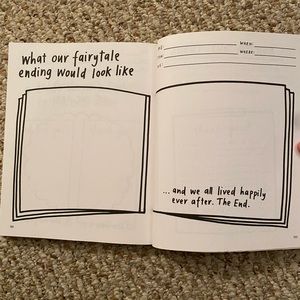 What our fairytale
ending would look like
WHEN:
WHERE:
... and we all lived happily
ever after. The End.